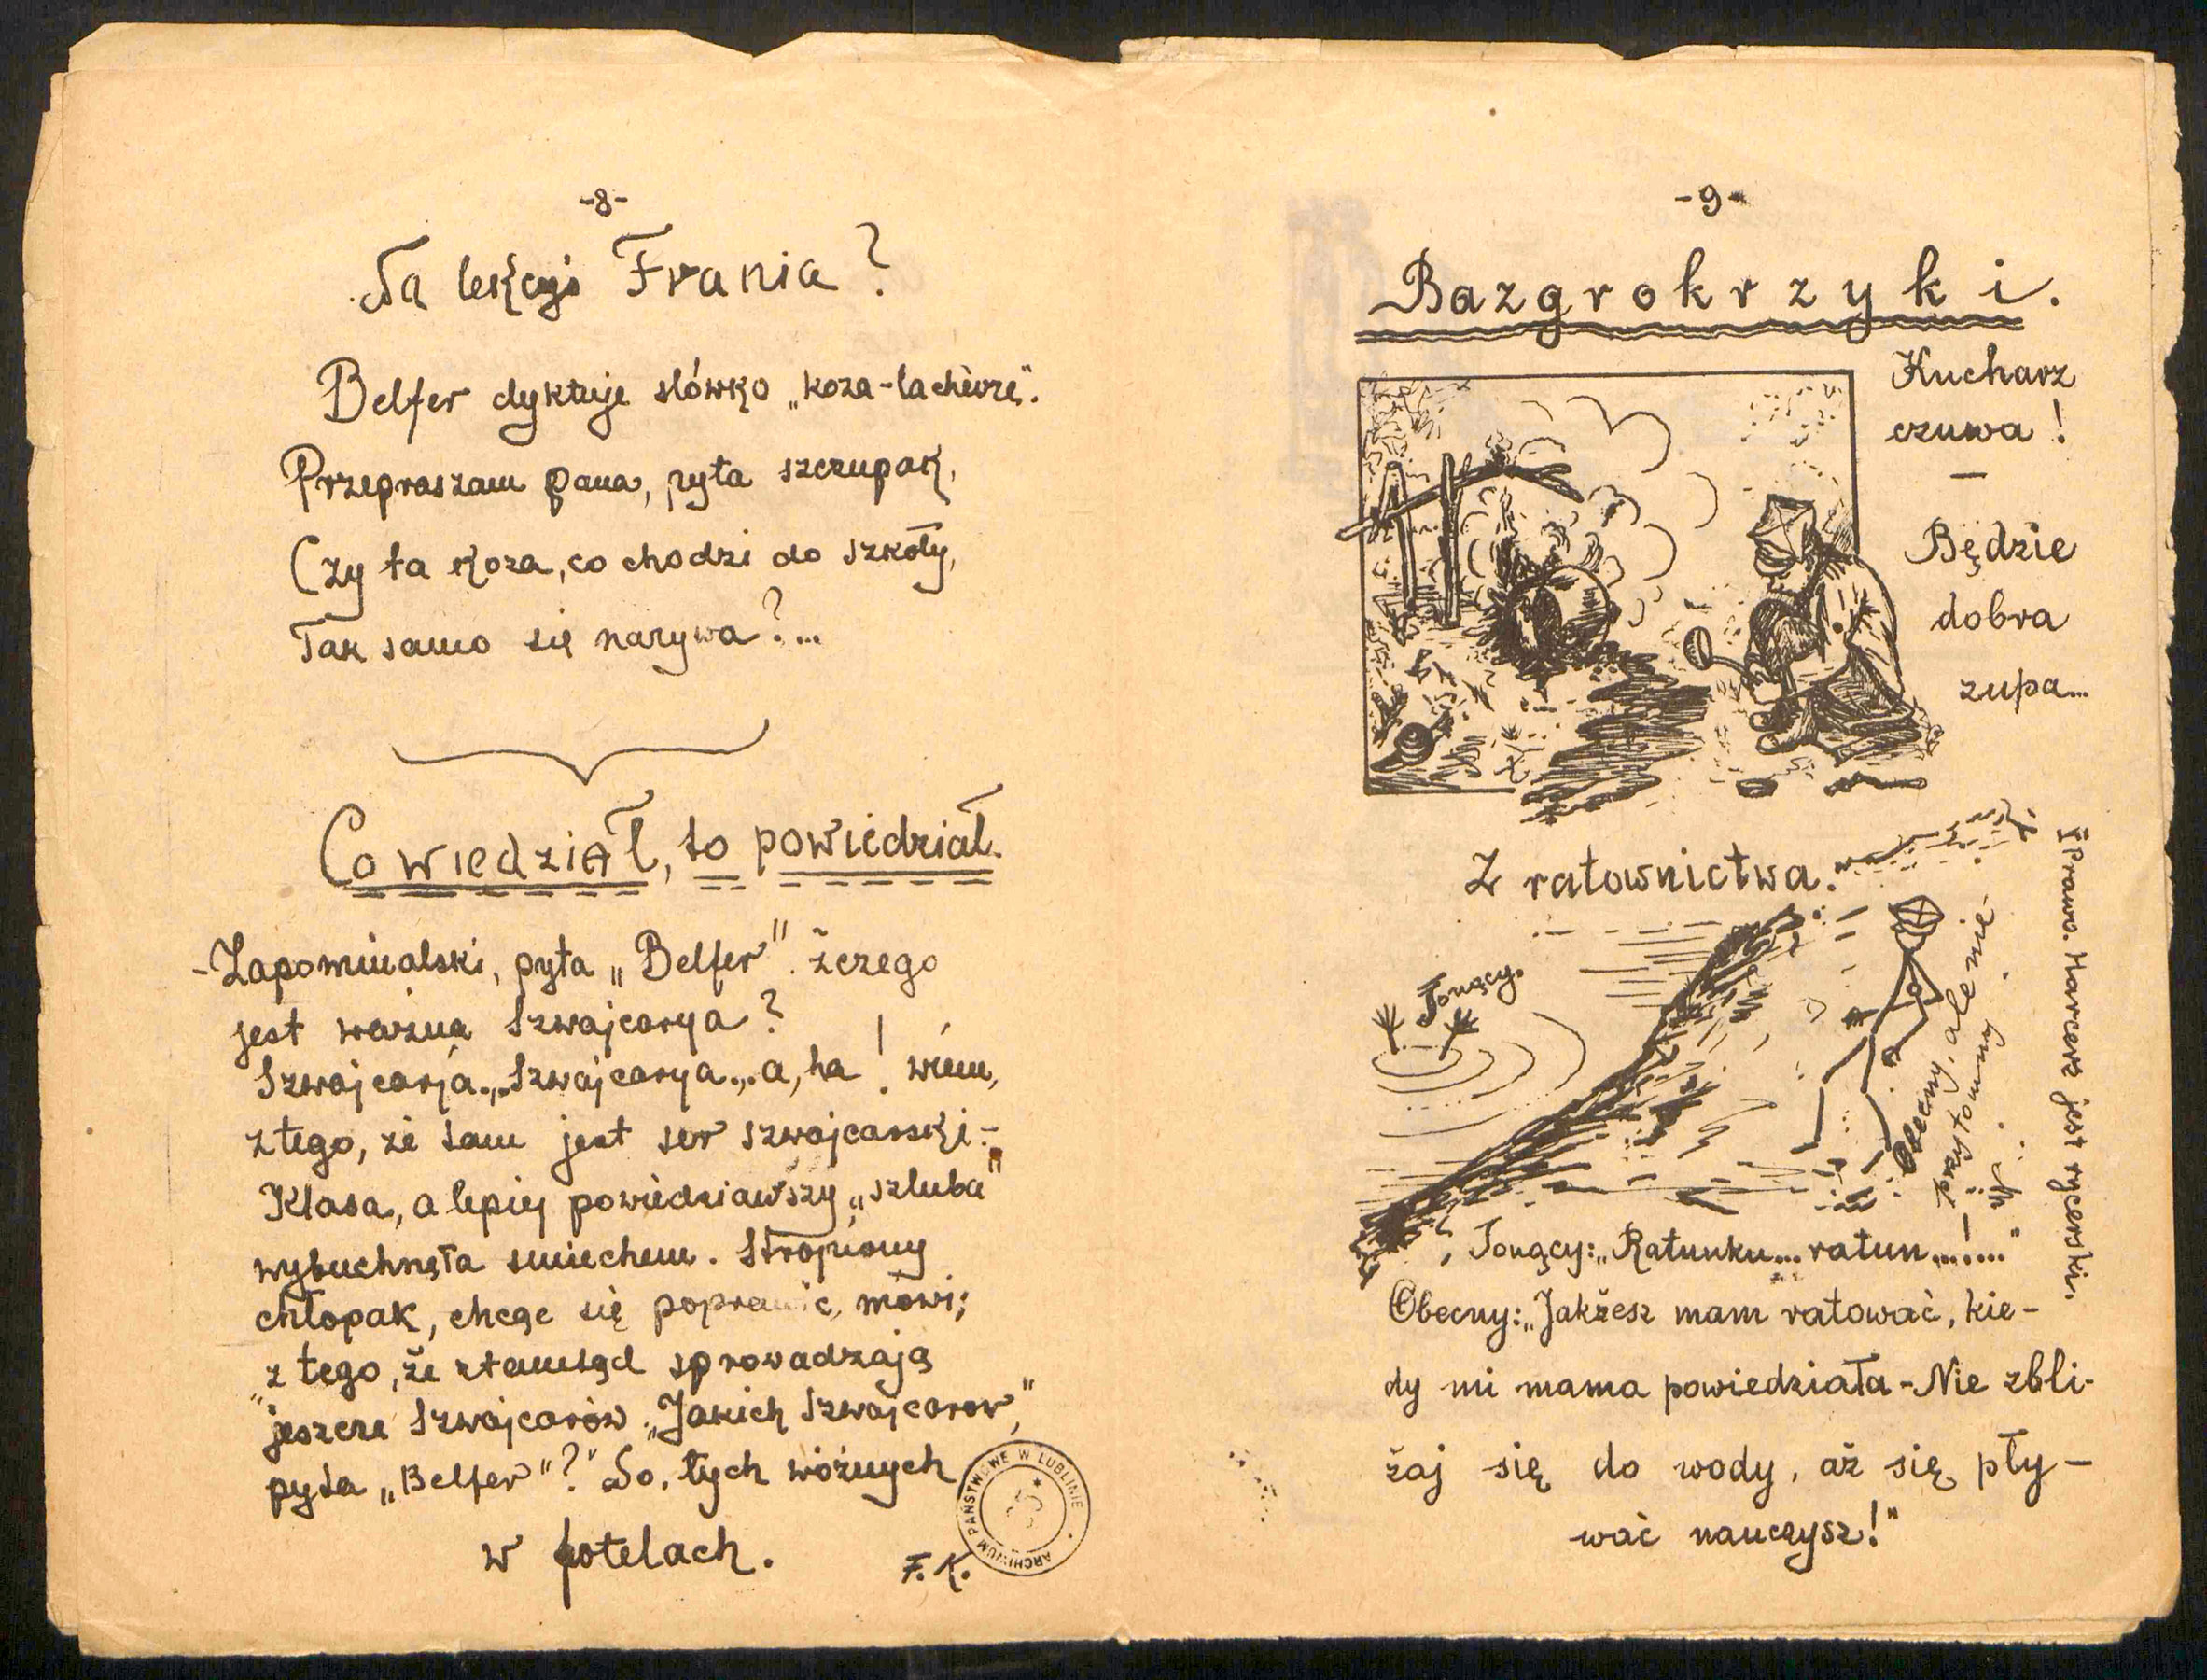 -8-
Na lekcyi Frania?
Belfer dyktuje słówko „koza - la chèvre”.
Przepraszam pana, pyta szczupak,
Czy ta koza, co chodzi do szkoły,
Tak samo się nazywa?...
Co wiedział, to powiedział.
- Zapominalski, pyta „Belfer”. żczego
jest ważna Szwajcarya?
Szwajcarja... Szwajcarya... a, ha! wiem,
z tego, że tam jest ser szwajcarski -
Klasa, a lepiej powiedziawszy „szluba”
wybuchnęła smiechem. Stropiony
chłopak, chcąc się poprawić, mówi;
„z tego, że ztamtąd sprowadzają
jeszcze Szwajcarów. „Jakich Szwajcarow,”
pyta „Belfer”?” No, tych wóżnych
w hotelach.
F. K.
ARCHIWUM PAŃSTWOWE W LUBLINIE
-9-
Bazgrokrzyki.
Kucharz
czuwa!
—
Będzie
dobra
zupa...
Z ratownictwa.
Tonący.
Obecny, ale nie-
przytomny
Prawo. Harcerz jest rycerski.
Tonący: „Ratunku... ratun...!...”
Obecny: „Jakżesz mam ratować, kie-
dy mi mama powiedziała - Nie zbli-
żaj się do wody, aż się pły-
wać nauczysz!”